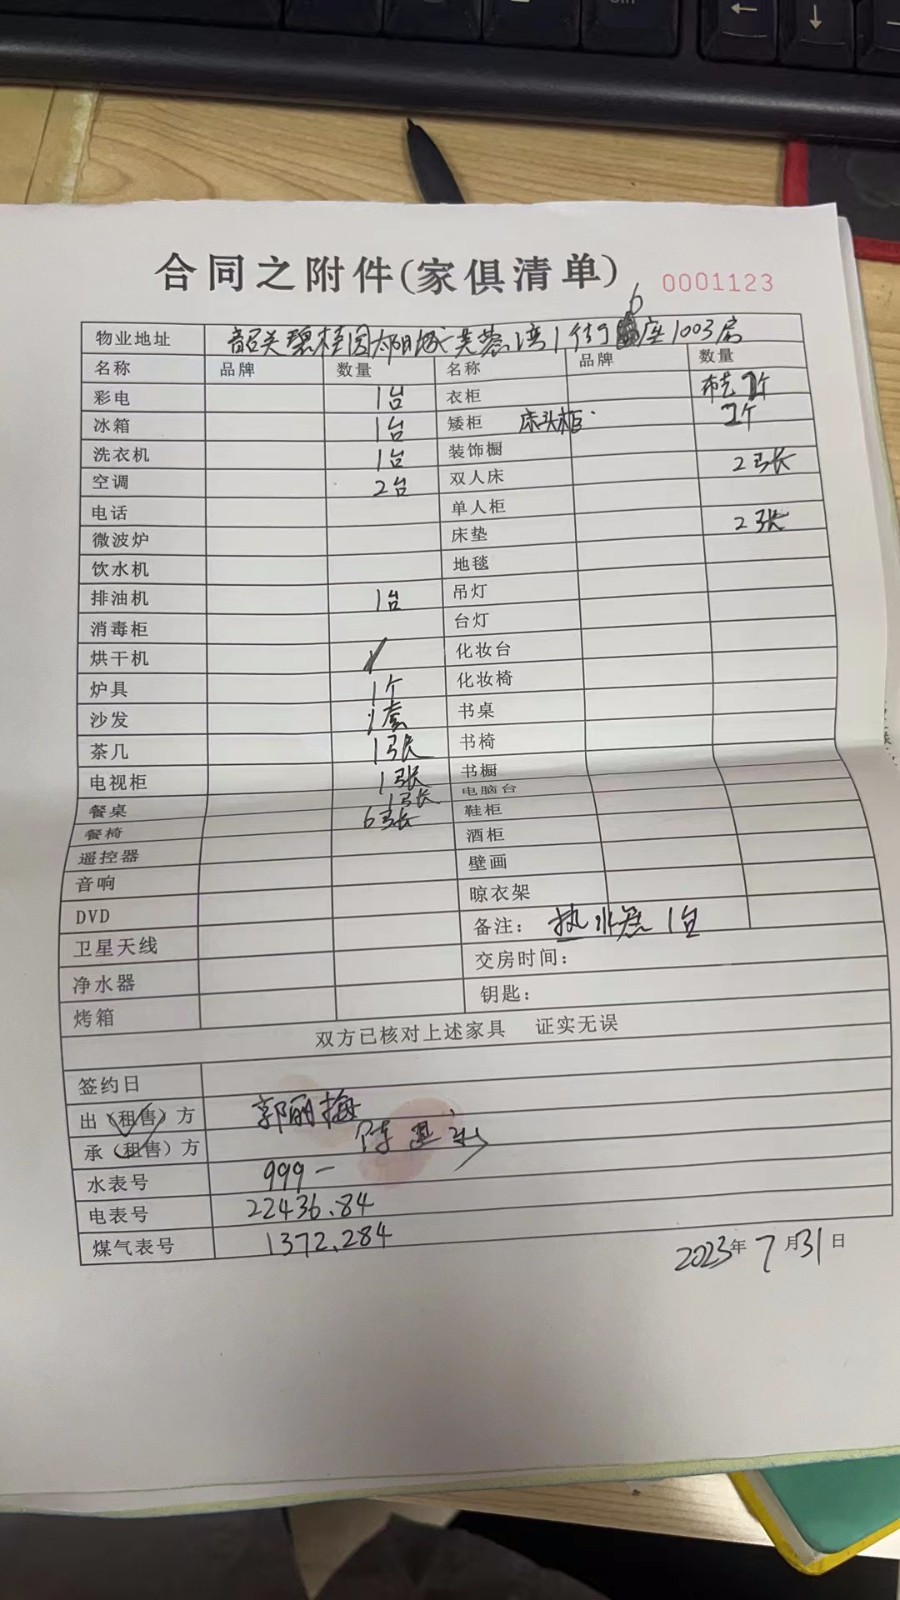 合同之附件(家俱清单) 0001123
物业地址 韶关碧桂园太阳城芙蓉湾1街6座1003房
名称 品牌 数量 名称 品牌 数量
彩电 1台 衣柜 布艺 1个
冰箱 1台 矮柜 床头柜 2个
洗衣机 1台 装饰橱
空调 2台 双人床 2张
电话 单人柜
微波炉 床垫 2张
饮水机 地毯
排油机 1台 吊灯
消毒柜 台灯
烘干机 化妆台
炉具 1个 化妆椅
沙发 1套 书桌
茶几 1张 书椅
电视柜 1张 书橱
餐桌 1张 电脑台
餐椅 6张 鞋柜
遥控器 酒柜
音响 壁画
DVD 晾衣架
卫星天线 备注: 热水器 1台
净水器 交房时间:
烤箱 钥匙:
双方已核对上述家具 证实无误
签约日
出(租售)方 郭丽梅
承(租售)方 陈
水表号 999
电表号 22436.84
煤气表号 1372.284
2023年7月31日